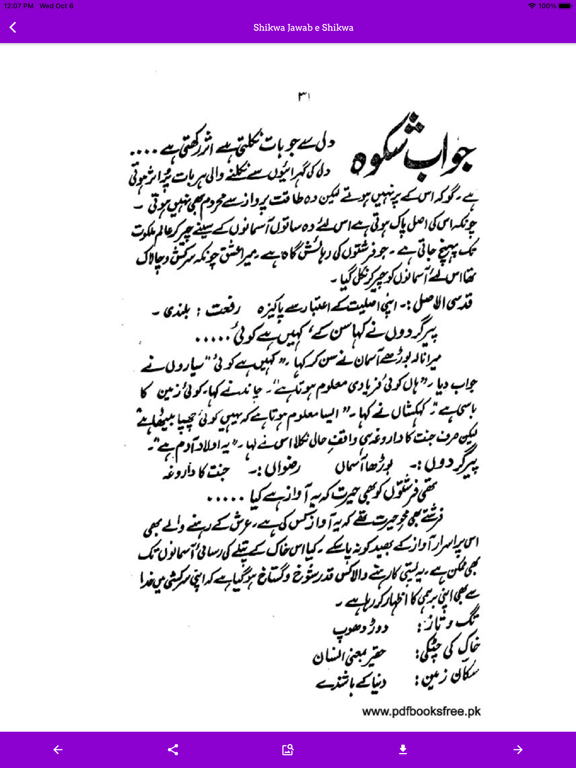 12:07 PM Wed Oct 6 100%
Shikwa Jawab e Shikwa
۳۱
جواب شکوہ
دل سے جو بات نکلتی ہے اثر رکھتی ہے ....
دل کی گہرائیوں سے نکلنے والی ہر بات پُر اثر ہوتی
ہے۔ گو کہ اس کے پر نہیں ہوتے لیکن وہ طاقت پرواز سے محروم بھی نہیں ہوتی ۔
چونکہ اس کی اصل پاک ہوتی ہے اس لئے وہ ساتوں آسمانوں کے سینے چیر کر عالم ملکوت
تک پہنچ جاتی ہے ۔ جو فرشتوں کی رہائش گاہ ہے ۔ میرا عشق چونکہ سرکش و چالاک
تھا اس لئے آسمانوں کو چیر کر نکل گیا ۔
قدسی الاصل :۔ اپنی اصلیت کے اعتبار سے پاکیزہ رفعت : بلندی ۔
پیر گردوں نے کہا سن کے ' کہیں ہے کوئی .....
میرا نالہ بوڑھے آسمان نے سن کر کہا ۔ "کہیں ہے کوئی" سیاروں نے
جواب دیا ۔ "ہاں کوئی فریادی معلوم ہوتا ہے"۔ چاند نے کہا، کوئی زمین کا
باسی ہے"۔ کہکشاں نے کہا ۔ "ایسا معلوم ہوتا ہے کہ یہیں کوئی چھپا بیٹھا ہے"
لیکن صرف جنت کا داروغہ ہی واقف حال نکلا اس نے کہا ۔ "یہ اولاد آدم ہے"۔
پیر گردوں :۔ بوڑھا آسمان رضواں :۔ جنت کا داروغہ
تھی فرشتوں کو بھی حیرت کہ یہ آواز ہے کیا .....
فرشتے بھی محو حیرت تھے کہ یہ آواز کس کی ہے ۔ عرش کے رہنے والے بھی
اس پر اسرار آواز کے بھید کو نہ پا سکے ۔ کیا اس خاک کے پتلے کی رسائی آسمانوں تک
بھی ممکن ہے ۔ یہ پستی کا رہنے والا کس قدر شوخ و گستاخ ہو گیا ہے کہ اپنی سرکشی میں خدا
سے بھی اپنی برہمی کا اظہار کر رہا ہے ۔
تگ و تاز : دوڑ دھوپ
خاک کی چٹکی : حقیر بمعنی انسان
سکان زمین : دنیا کے باشندے
www.pdfbooksfree.pk